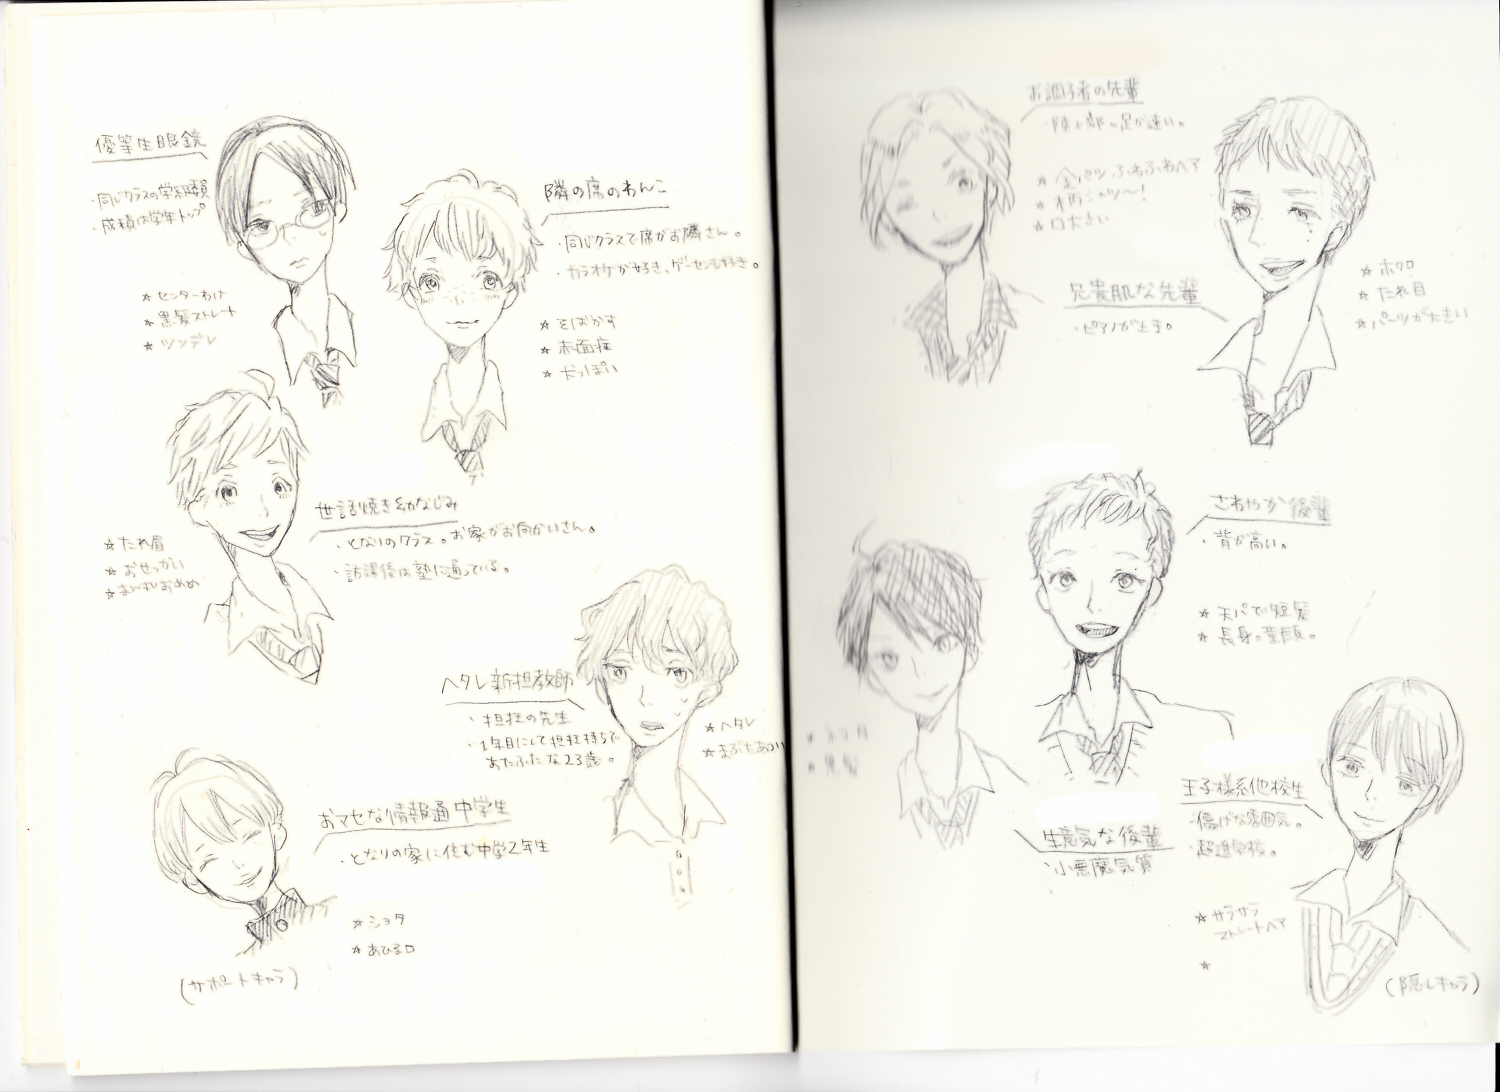 優等生眼鏡
・同じクラスの学級委員
・成績は学年トップ
☆センターわけ
☆黒髪ストレート
☆ツンデレ
隣の席のわんこ
・同じクラスで席がお隣さん。
・カラオケが好き、ゲーセンも好き。
☆そばかす
☆赤面症
☆犬っぽい
世話焼き幼なじみ
・となりのクラス。お家がお向かいさん。
・訪課後は塾に通っている。
☆たれ眉
☆おせっかい
☆まんまるおめめ
ヘタレ新担教師
・担任の先生
・1年目にして担任持ちで
あたふたな23歳。
☆ヘタレ
☆まぶたあつい
おマセな情報通中学生
・となりの家に住む中学2年生
☆ショタ
☆あひる口
(サポートキャラ)
お調子者の先輩
・陸上部の足が速い。
☆金パツふわふわヘア
☆柄シャツ〜!
☆口大きい
兄貴肌な先輩
・ピアノが上手。
☆ホクロ
☆たれ目
☆パーツが大きい
さわやか後輩
・背が高い。
☆天パで短髪
☆長身。童顔。
生意気な後輩
・小悪魔気質
☆黒髪
王子様系他校生
・儚げな雰囲気。
・超進学校。
☆サラサラ
ストレートヘア
☆
(隠しキャラ)